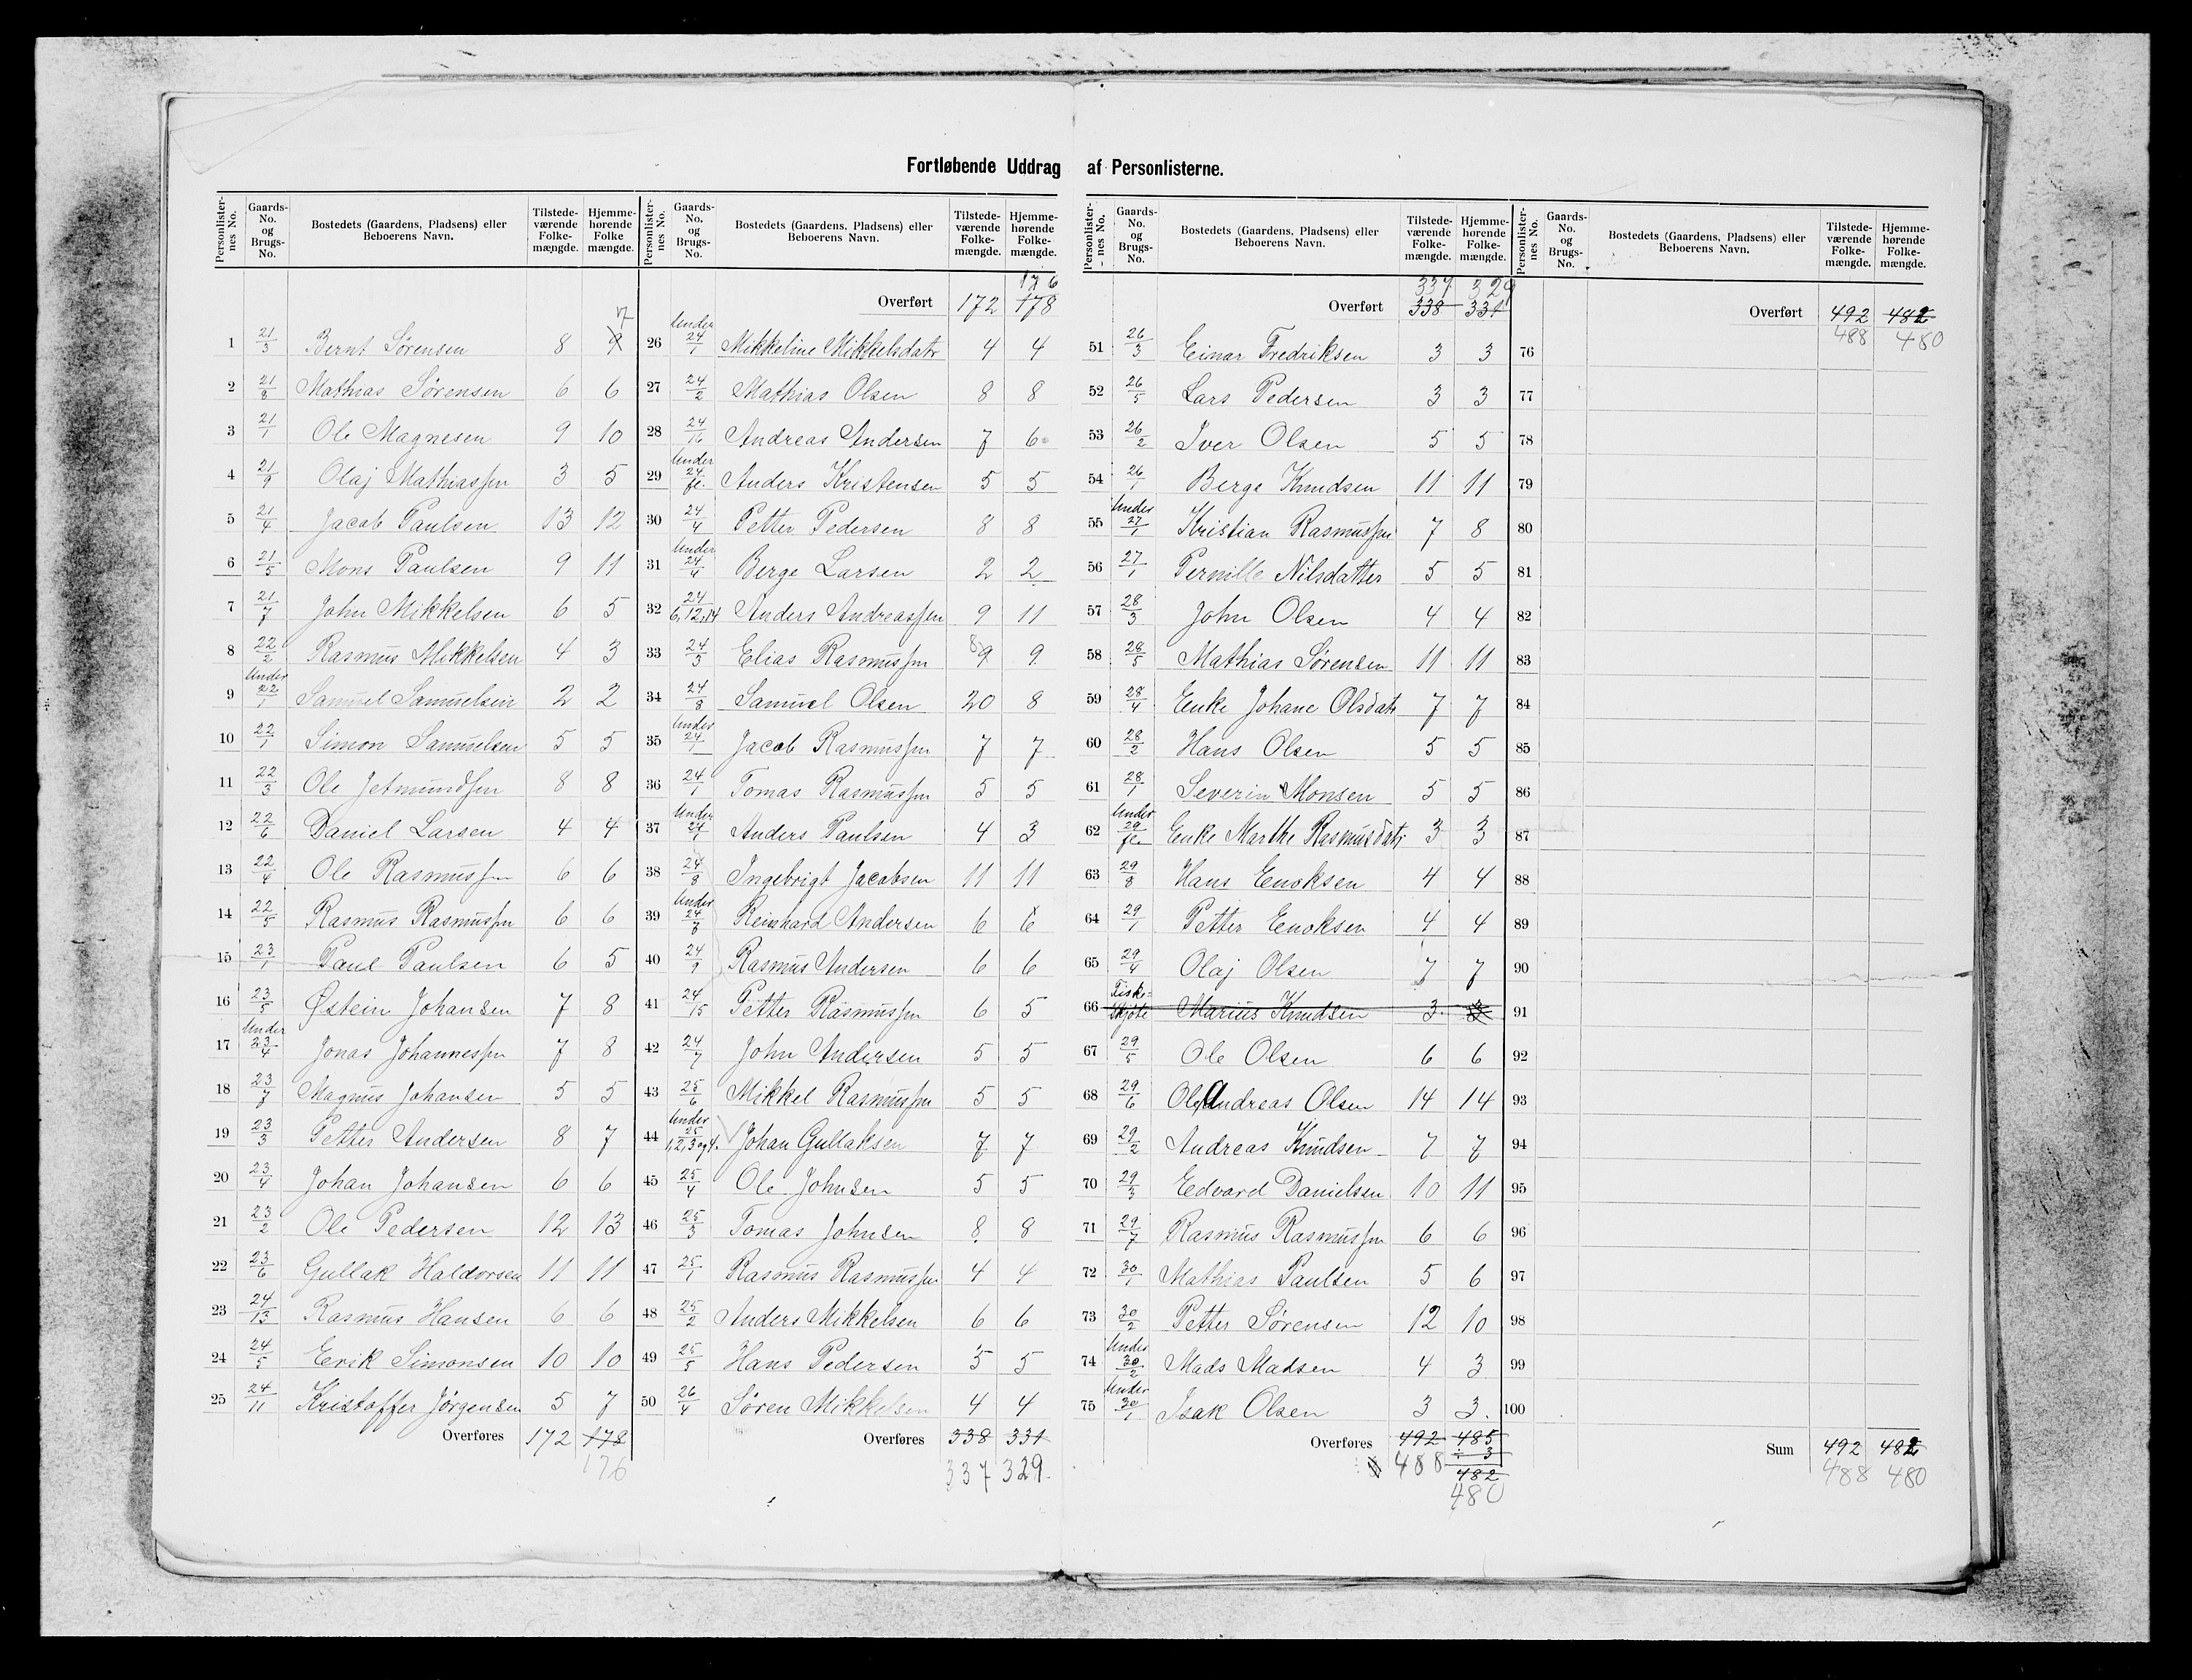 Fortløbende Uddrag af Personlisterne.
Personlister-nes No. | Gaards-No. og Brugs-No. | Bostedets (Gaardens, Pladsens) eller Beboerens Navn. | Tilstede-værende Folke-mængde. | Hjemme-hørende Folke mængde.
1 21/3 Bernt Sørensen 8 9 7
2 21/8 Mathias Sørensen 6 6
3 21/1 Ole Magnesen 9 10
4 21/9 Olaj Mathiassen 3 5
5 21/4 Jacob Paulsen 13 12
6 21/5 Mons Paulsen 9 11
7 21/7 John Mikkelsen 6 5
8 22/2 Rasmus Mikkelsen 4 3
9 Under 22/1 Samuel Samuelsen 2 2
10 22/1 Simon Samuelsen 5 5
11 22/3 Ole Jetmundsen 8 8
12 22/6 Daniel Larsen 4 4
13 22/4 Ole Rasmussen 6 6
14 22/5 Rasmus Rasmussen 6 6
15 23/1 Paul Paulsen 6 5
16 23/5 Østein Johansen 7 8
17 Under 23/4 Jonas Johannessen 7 8
18 23/7 Magnus Johansen 5 5
19 23/3 Petter Andersen 8 7
20 23/4 Johan Johansen 6 6
21 23/2 Ole Pedersen 12 13
22 23/6 Gullak Haldorsen 11 11
23 24/13 Rasmus Hansen 6 6
24 24/5 Erik Simonsen 10 10
25 24/11 Kristoffer Jørgensen 5 7
Overføres 172 178
176
Personlister-nes No. | Gaards-No. og Brugs-No. | Bostedets (Gaardens, Pladsens) eller Beboerens Navn. | Tilstede-værende Folke-mængde. | Hjemme-hørende Folke-mængde.
176
Overført 172 178
26 Under 24/1 Mikkeline Mikkelsdatr 4 4
27 24/2 Mathias Olsen 8 8
28 24/16 Andreas Andersen 7 6
29 Under 24/fl. Anders Kristensen 5 5
30 24/4 Petter Pedersen 8 8
31 Under 24/4 Berge Larsen 2 2
32 24/6,12,14 Anders Andreassen 9 11
33 24/3 Elias Rasmussen 8 9 9
34 24/8 Samuel Olsen 20 8
35 Under 24/1 Jacob Rasmussen 7 7
36 24/1 Tomas Rasmussen 5 5
37 Under 24/1 Anders Paulsen 4 3
38 24/8 Ingebrigt Jacobsen 11 11
39 Under 24/7 Reinhard Andersen 6 6
40 24/9 Rasmus Andersen 6 6
41 24/15 Petter Rasmussen 6 5
42 24/7 John Andersen 5 5
43 25/6 Mikkel Rasmussen 5 5
44 Under 25/1,2,3 og 4. Johan Gullaksen 7 7
45 25/4 Ole Johnsen 5 5
46 25/3 Tomas Johnsen 8 8
47 25/1 Rasmus Rasmussen 4 4
48 25/2 Anders Mikkelsen 6 6
49 25/5 Hans Pedersen 5 5
50 26/4 Søren Mikkelsen 4 4
Overføres 338 331
337 329
Personlister-nes No. | Gaards-No. og Brugs-No. | Bostedets (Gaardens, Pladsens) eller Beboerens Navn. | Tilstede-værende Folke-mængde. | Hjemme-hørende Folke-mængde.
337 329
Overført 338 331
51 26/3 Einar Fredriksen 3 3
52 26/5 Lars Pedersen 3 3
53 26/2 Iver Olsen 5 5
54 26/1 Berge Knudsen 11 11
55 Under 27/1 Kristian Rasmussen 7 8
56 27/1 Pernille Nilsdatter 5 5
57 28/3 John Olsen 4 4
58 28/5 Mathias Sørensen 11 11
59 28/4 Enke Johane Olsdatr 7 7
60 28/2 Hans Olsen 5 5
61 28/1 Severin Monsen 5 5
62 Under 29/fl. Enke Marthe Rasmusdatr 3 3
63 29/8 Hans Enoksen 4 4
64 29/1 Petter Enoksen 4 4
65 29/4 Olaj Olsen 7 7
66 Fiske-skjøte Marius Knudsen 3 3
67 29/5 Ole Olsen 6 6
68 29/6 Ole Andreas Olsen 14 14
69 29/2 Andreas Knudsen 7 7
70 29/3 Edvard Danielsen 10 11
71 29/7 Rasmus Rasmussen 6 6
72 30/1 Mathias Paulsen 5 6
73 30/2 Petter Sørensen 12 10
74 Under 30/2 Mads Madsen 4 3
75 Under 30/1 Isak Olsen 3 3.
Overføres 492 485
488 ÷ 3
482
480
Personlister-nes No. | Gaards-No. og Brugs-No. | Bostedets (Gaardens, Pladsens) eller Beboerens Navn. | Tilstede-værende Folke-mængde. | Hjemme-hørende Folke-mængde.
Overført 492 482
488 480
76
77
78
79
80
81
82
83
84
85
86
87
88
89
90
91
92
93
94
95
96
97
98
99
100
Sum 492 482
488 480